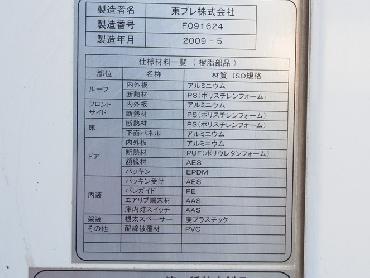 製造者名 東プレ株式会社
製造番号 F091624
製造年月 2009-5
仕様材料一覧 (樹脂部品)
部位 名称 材質 ISO規格
ルーフ 内外板 アルミニウム
断熱材 PS(ポリスチレンフォーム)
フロント 内外板 アルミニウム
サイド 断熱材 PS(ポリスチレンフォーム)
床 断熱材 PS(ポリスチレンフォーム)
下面パネル アルミニウム
ドア 内外板 アルミニウム
断熱材 PUF(ポリウレタンフォーム)
AES
パッキン EPDM
内装 パッキン受け AES
PE
エアリブ端末材 AAS
庫内灯スイッチ AAS
架装 根太スペーサー 再プラスチック
その他 配線被覆材 PVC